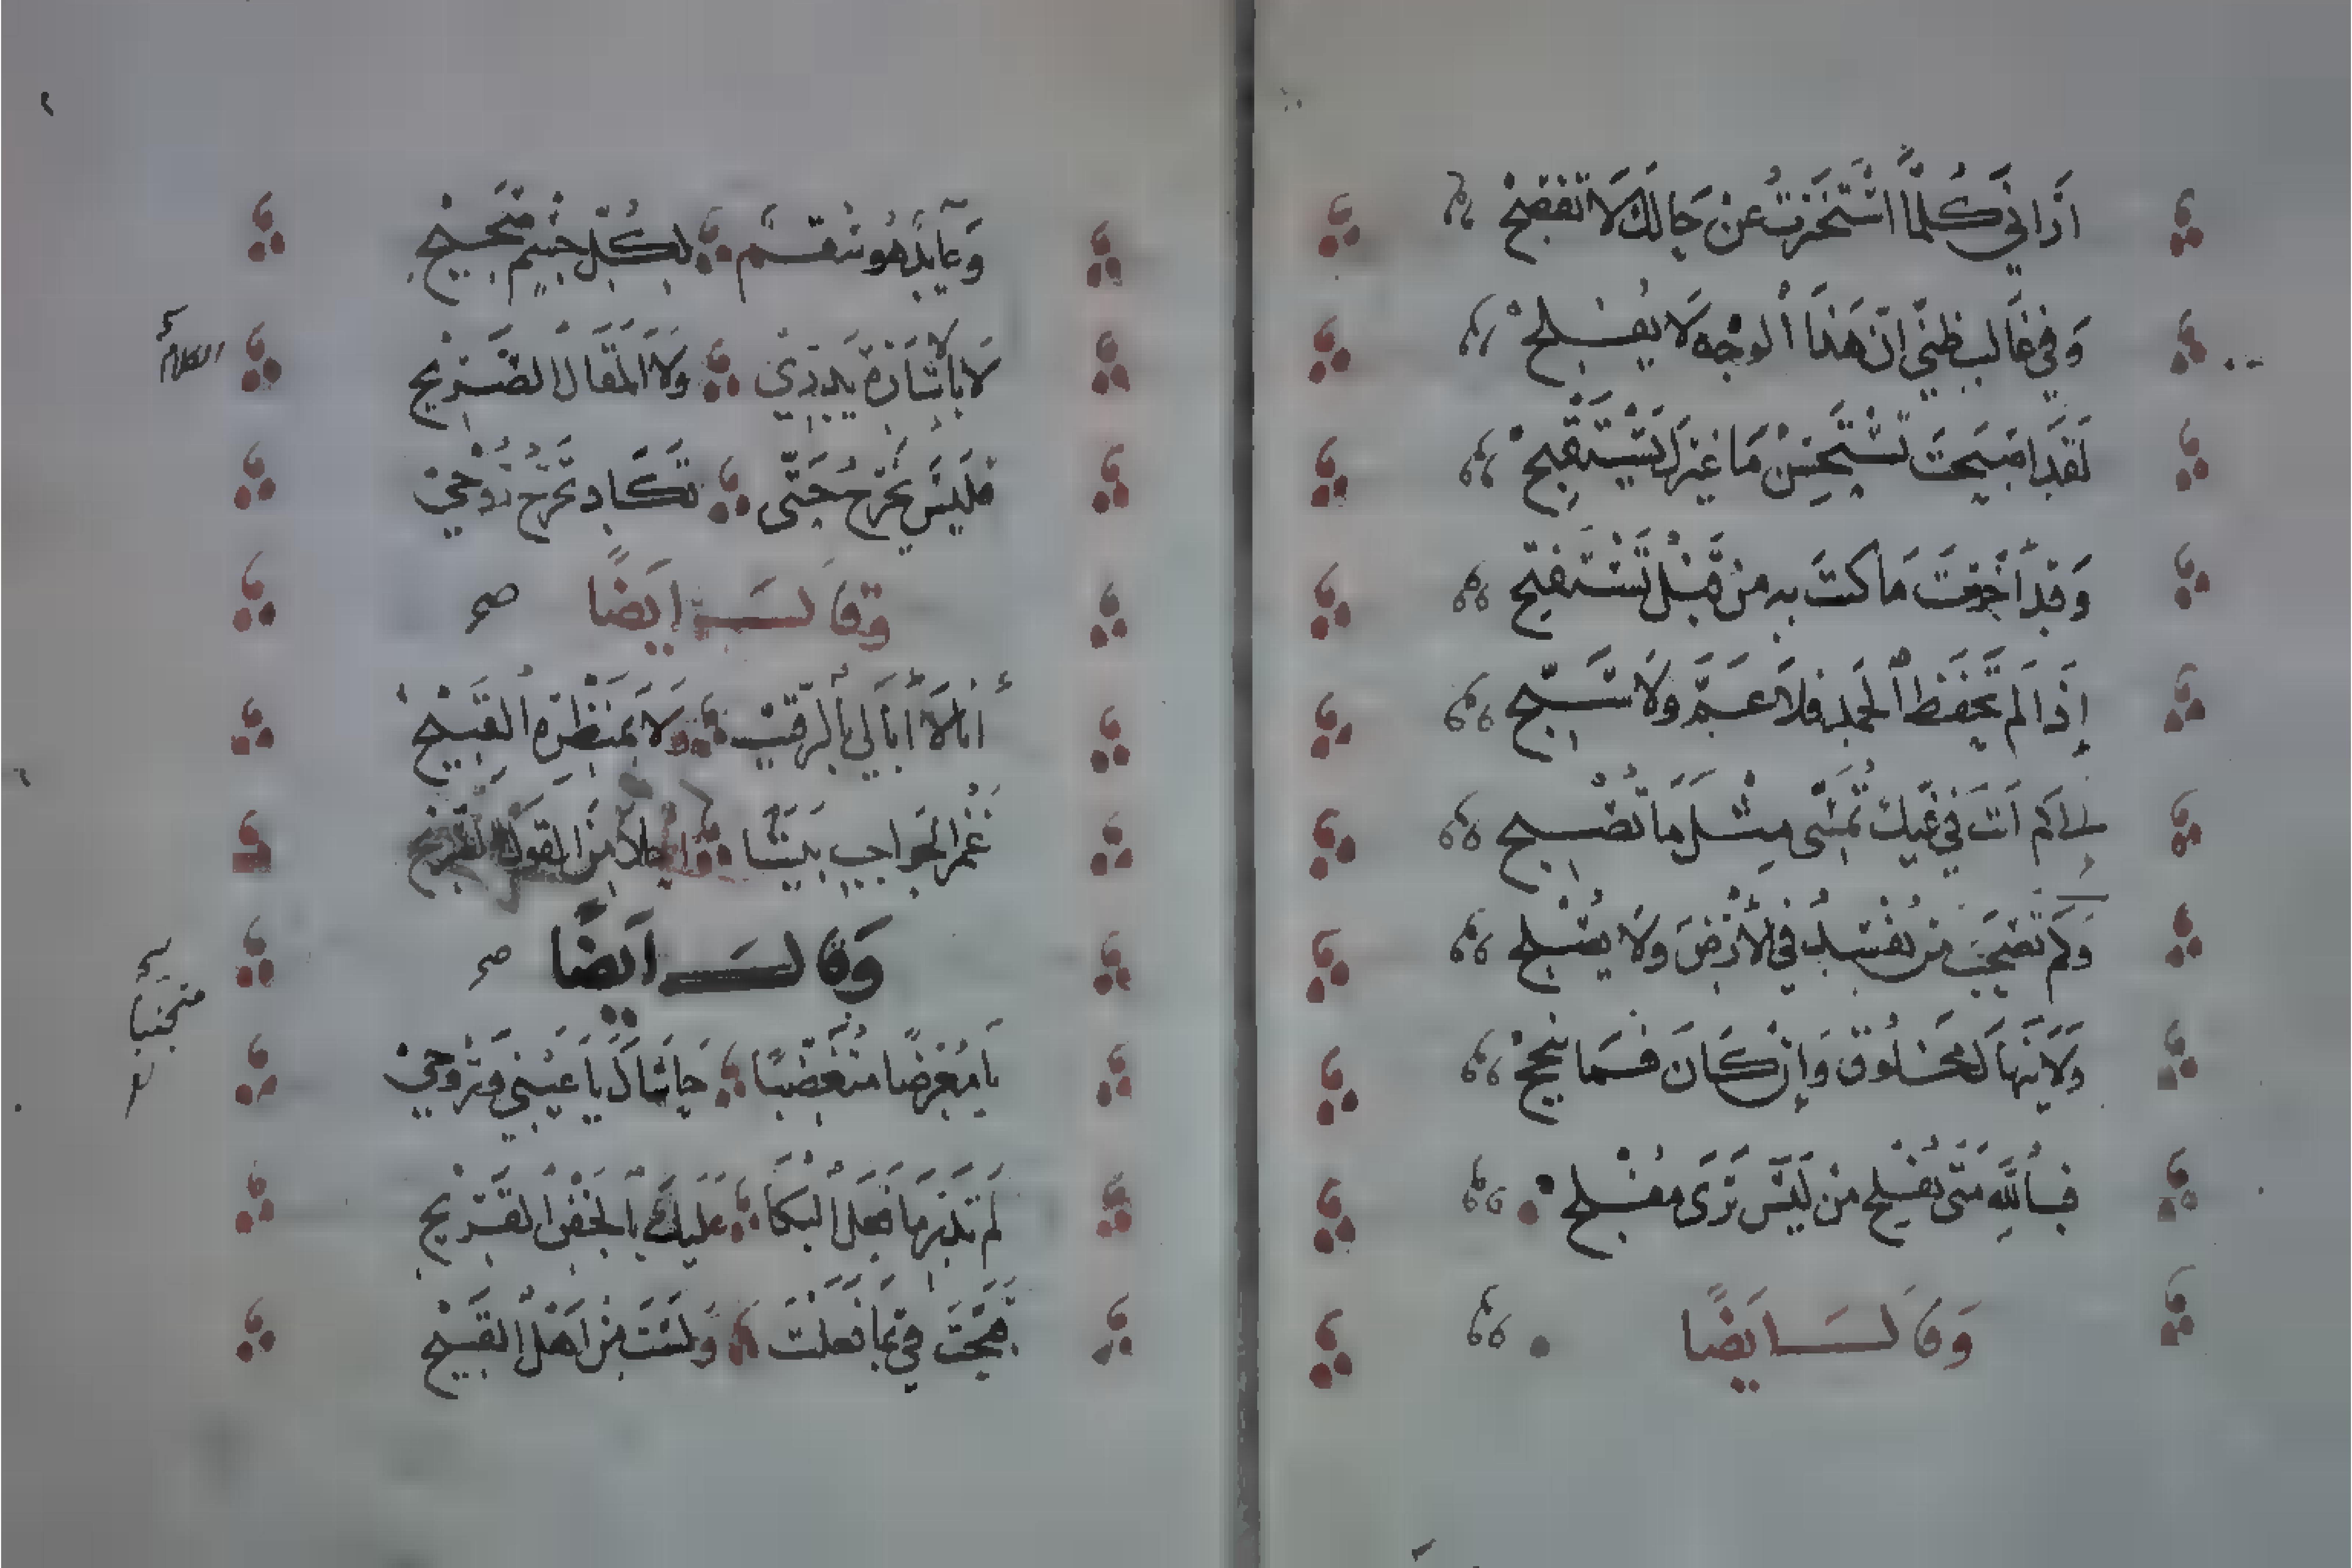 أراني كلما استخبرت عن حالك لا تفصح
وفي غالب ظني ان هذا الوجه لا يفلح
لقد اصبحت تستحسن ما غيرك يستقبح
وقد اخرفت ما كنت به من قبل تستفتح
إذا لم تحفظ الحمد فلا عم ولا سبح
الى كم انت في غيك تمسي مثل ما تصبح
وكم تصحب من يفسد في الأرض ولا يصلح
ولا ينهاك مخلوق وإن كان فما ينجح
فبالله متى يفلح من ليس يرى مفلح
وقال ايضا
وعايد هو سقم لكل جسم صحيح
لا بالاشارة يدري ولا المقال الصريح
الكلام
فليس يخرج حتى تكاد تخرج روحي
وقال ايضا صح
أنا لا أبالي بالرقيب ولا بمنظره القبيح
غمز الحواجب بيننا احلا من القول الصريح
وقال ايضا صح
يا معرضا متغضبا حاشاك يا عيني وروحي
متجنبا
لم تدر ما فعل البكا عليك بالجفن القريح
قبحت في بما فعلت ولست من اهل القبيح